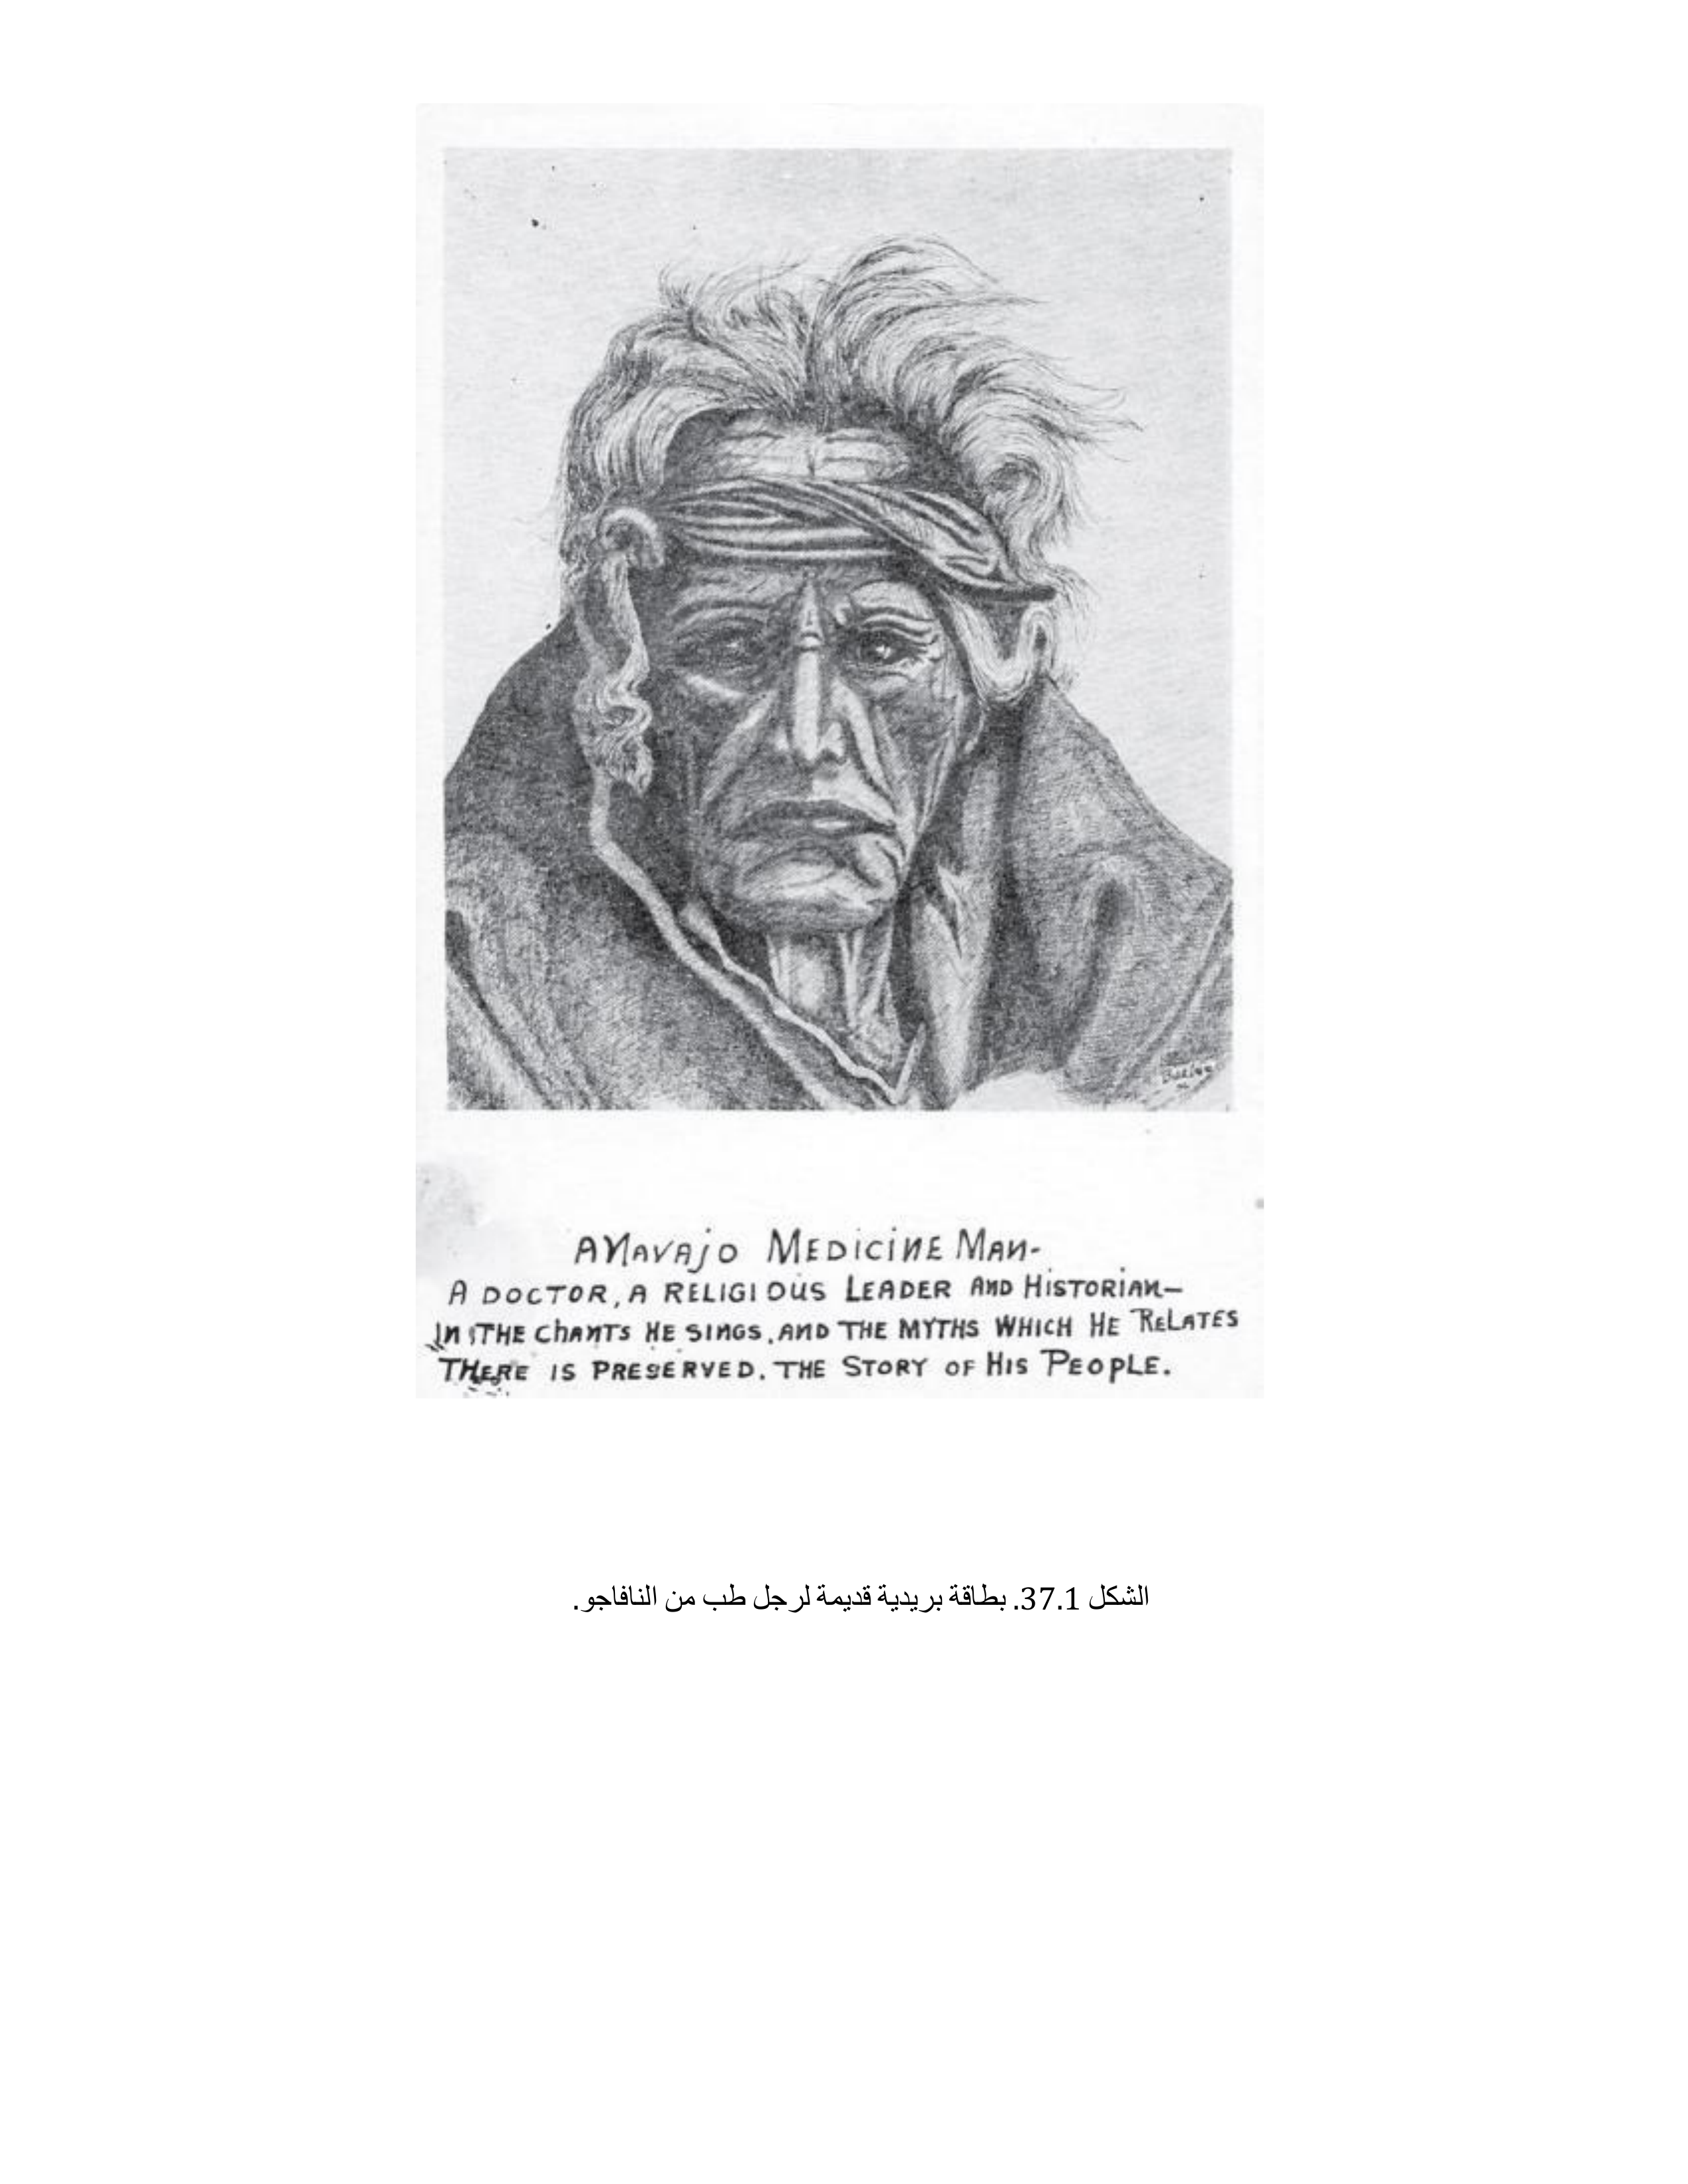 A Navajo Medicine Man-
A DOCTOR, A RELIGIOUS LEADER AND HISTORIAN—
IN THE CHANTS HE SINGS, AND THE MYTHS WHICH HE RELATES
THERE IS PRESERVED. THE STORY OF HIS PEOPLE.
الشكل 37.1. بطاقة بريدية قديمة لرجل طب من النافاجو.